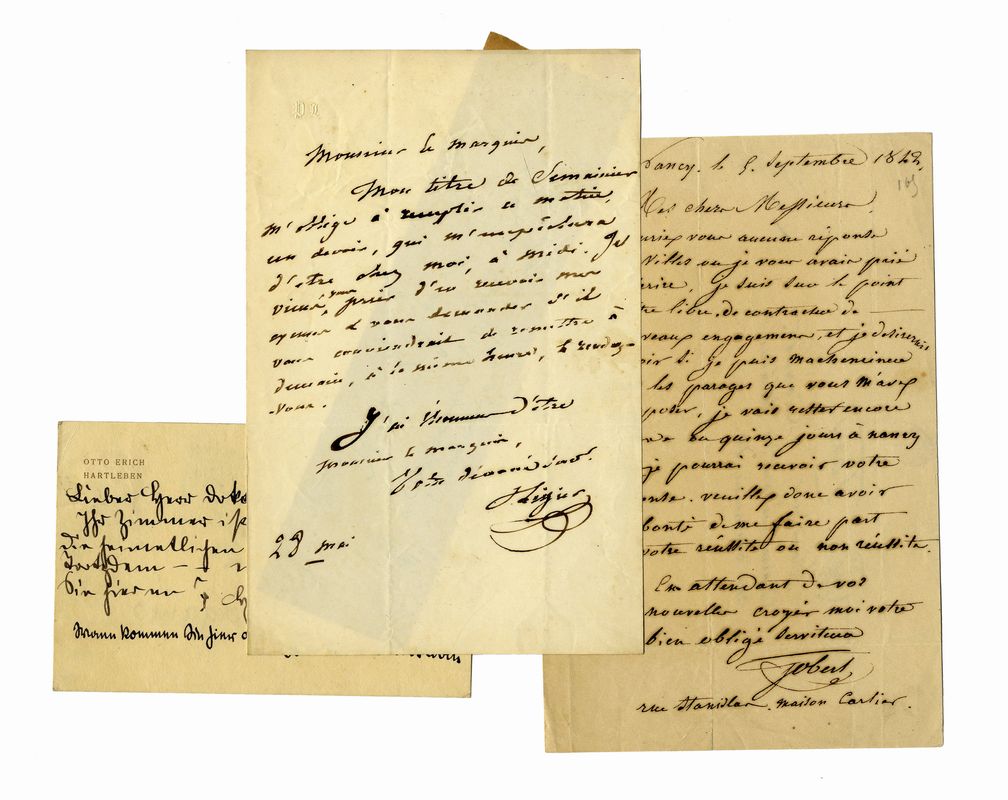 Monsieur le marquis,
Mon titre de Semainier
m'oblige à remplir ce matin,
un devoir, qui m'empêchera
d'être chez moi, à midi. Je
viens, vous prier d'en recevoir mes
excuses & vous demander s'il
vous conviendrait de remettre à
demain, à la même heure, le rendez-
vous.
J'ai l'honneur d'être
Monsieur le marquis,
Votre dévoué
Ligier
28 mai
Nancy, le 5 Septembre
165
Mes chers Messieurs,
vous aucune réponse
Villes ou je vous avais prié
je suis sur le point
libre, de contracter de
engagemens, et je désirerais
si je puis m'acheminer
les parages que vous m'avez
je vais rester encore
ou quinze jours à nancy
je pourrai recevoir votre
veuillez donc avoir
bonté de me faire part
votre réussite ou non réussite.
En attendant de vos
nouvelles croyés moi votre
bien obligé Serviteur
Jobert
rue Stanislas. maison Cartier.
OTTO ERICH
HARTLEBEN
Lieber Herr
Ihr Zimmer ist
die heimatlichen
Trotzdem —
Sie hier
Wann kommen Sie hier